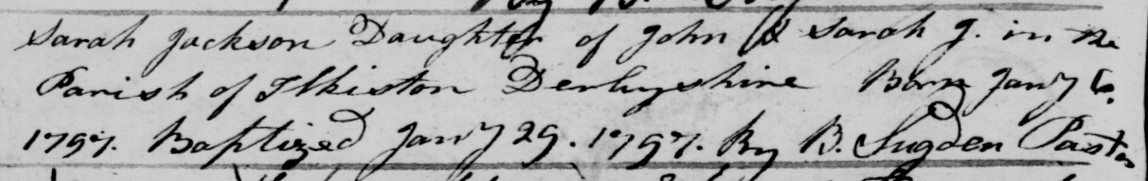 Sarah Jackson Daughter of John & Sarah J. in the
Parish of Ilkiston Derbyshire Born Jany 6.
1797. Baptized Jany 29. 1797. By B. Sugden Pastor